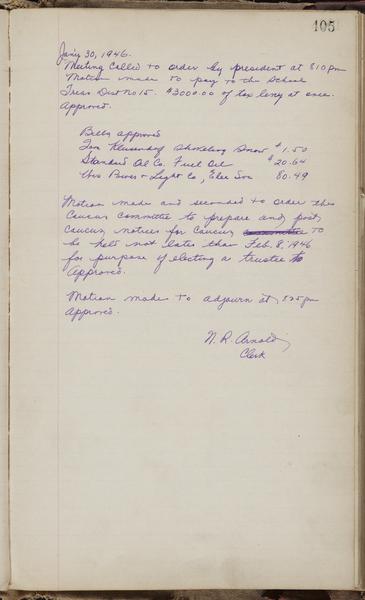 105
Jan'y 30, 1946.
Meeting Called to order by president at 810 pm
Motion made to pay to the School
Treas Dist No 15. $3000.00 of tax levy at once.
Approved.
Bills approved
Klusendorf Shoveling Snow $1.50
Standard Oil Co. Fuel Oil $20.64
Wis Power & Light Co, Elec Ser 80.49
Motion made and seconded to order the
Caucus committee to prepare and post
Caucus notices for Caucus to
be held not later than Feb. 8, 1946
for purpose of electing a trustee to
Approved.
Motion made to adjourn at 825 pm
Approved.
N. R. Arnold
Clerk